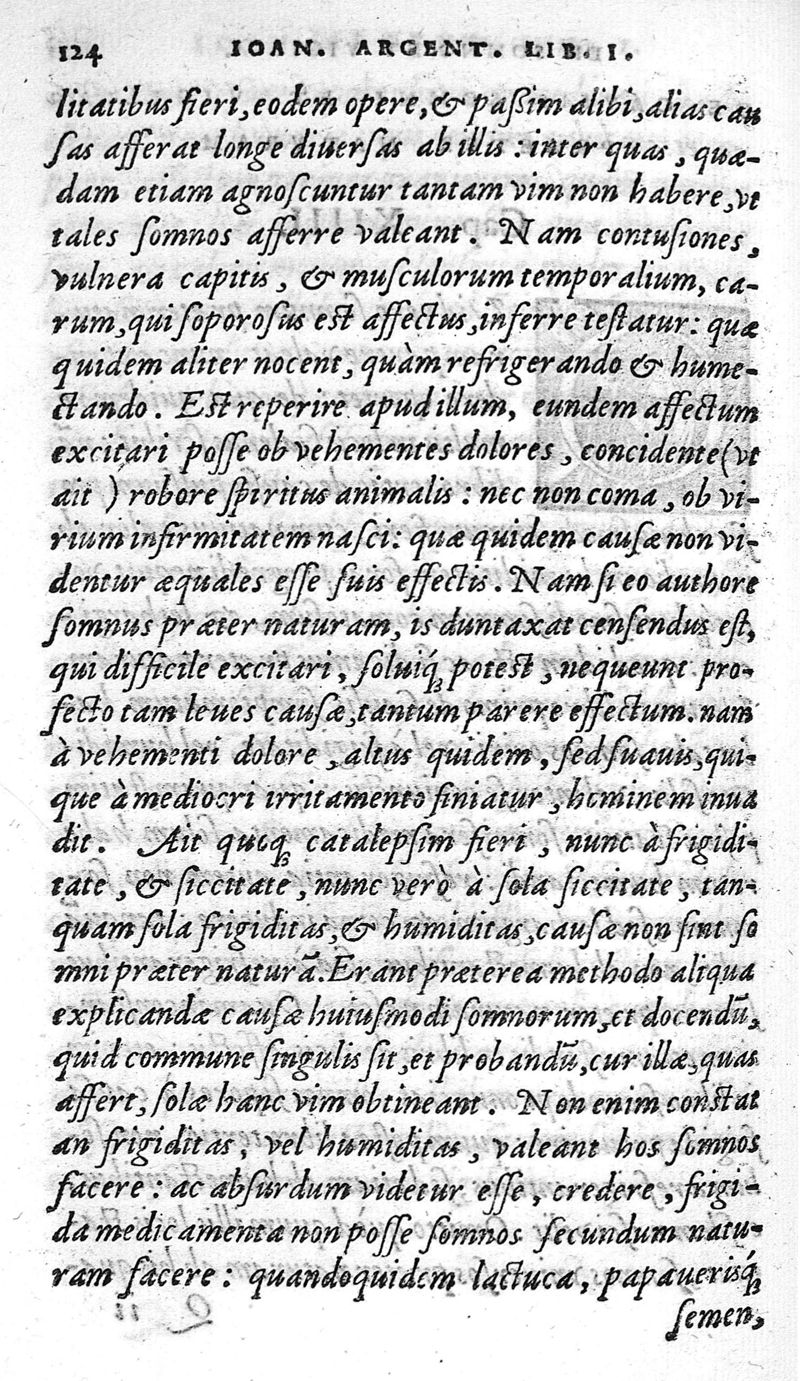 124 IOAN. ARGENT. LIB. I.
litatibus fieri, eodem opere, & paßim alibi, alias cau
sas afferat longe diuersas ab illis: inter quas, quæ-
dam etiam agnoscuntur tantam vim non habere, vt
tales somnos afferre valeant. Nam contusiones,
vulnera capitis, & musculorum temporalium, ca-
rum, qui soporosus est affectus, inferre testatur: quæ
quidem aliter nocent, quàm refrigerando & hume-
ctando. Est reperire apud illum, eundem affectum
excitari posse ob vehementes dolores, concidente (vt
ait) robore spiritus animalis: nec non coma, ob vi-
rium infirmitatem nasci: quæ quidem causæ non vi-
dentur æquales esse suis effectis. Nam si eo authore
somnus præter naturam, is duntaxat censendus est,
qui difficile excitari, soluiq́; potest, nequeunt pro-
fecto tam leues causæ, tantum parere effectum. nam
à vehementi dolore, altus quidem, sed suauis, qui-
que à mediocri irritamento finiatur, hominem inua
dit. Ait quoq; catalepsim fieri, nunc à frigidi-
tate, & siccitate, nunc verò à sola siccitate, tan-
quam sola frigiditas, & humiditas, causæ non sint so
mni præter naturā. Erant præterea methodo aliqua
explicandæ causæ huiusmodi somnorum, et docendū,
quid commune singulis sit, et probandū, cur illæ, quas
affert, solæ hanc vim obtineant. Non enim constat
an frigiditas, vel humiditas, valeant hos somnos
facere: ac absurdum videtur esse, credere, frigi-
da medicamenta non posse somnos secundum natu-
ram facere: quandoquidem lactuca, papauerisq́;
semen,